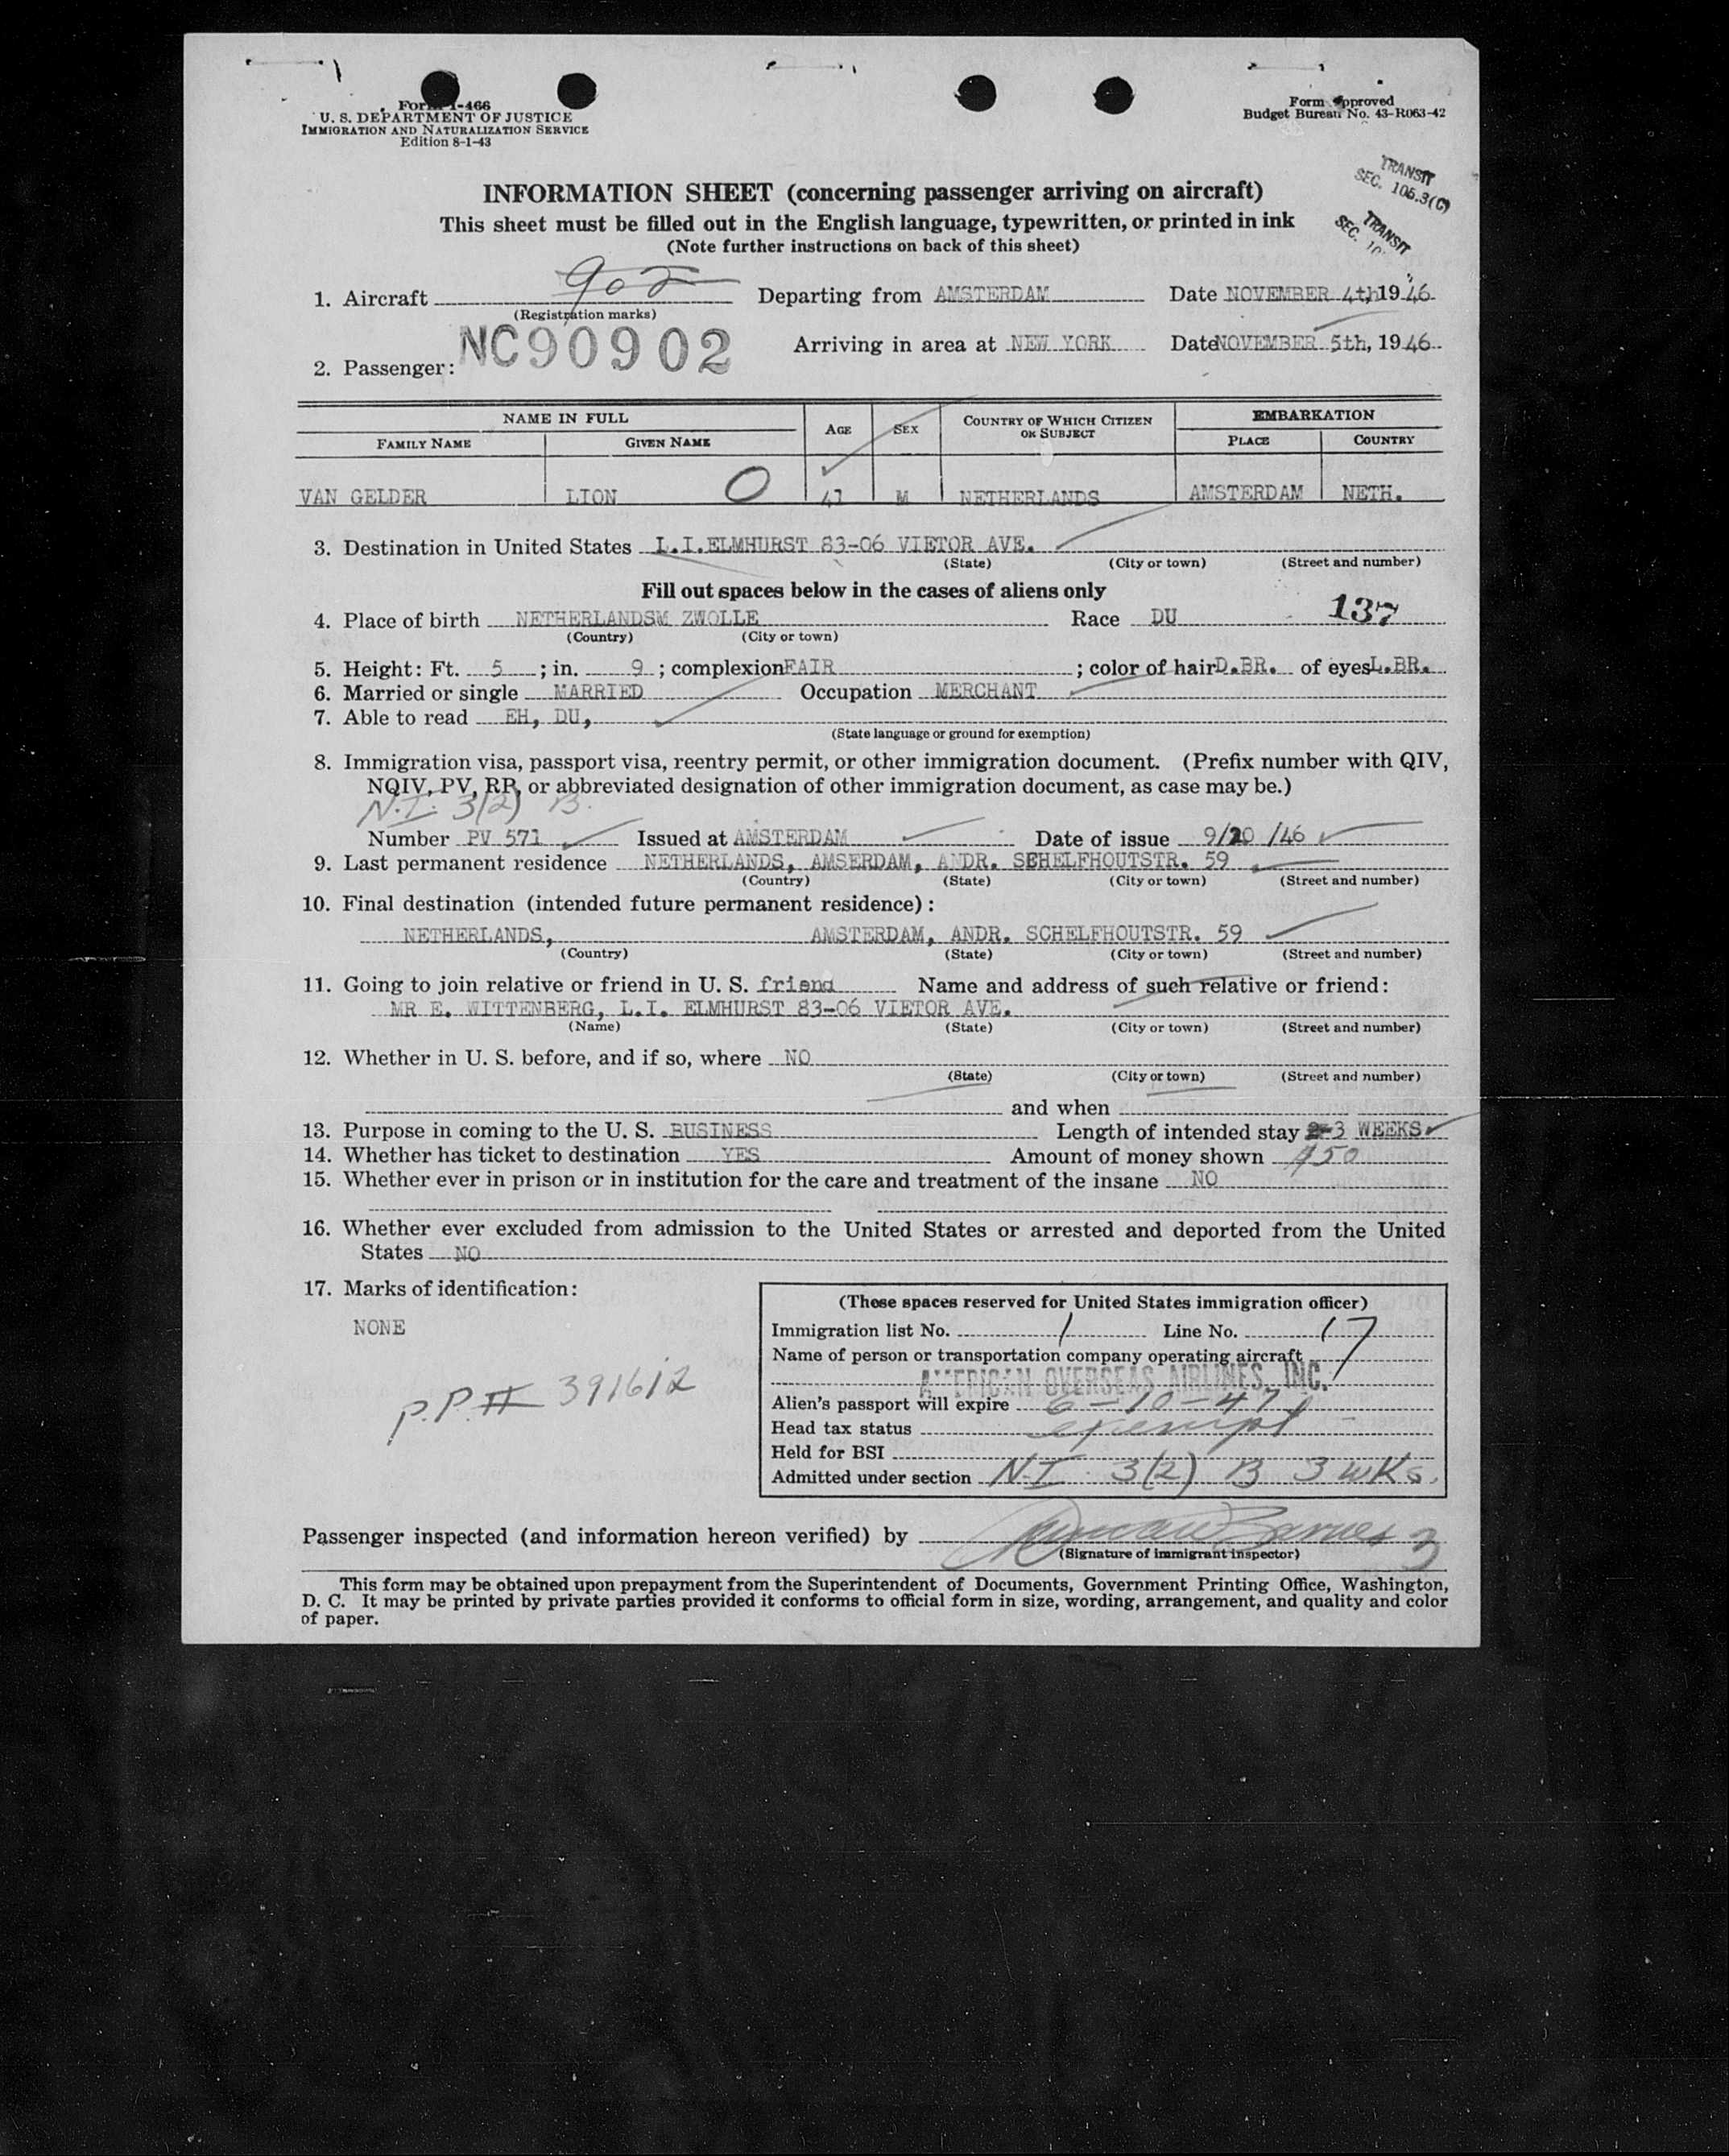 Form I-466
U. S. DEPARTMENT OF JUSTICE
IMMIGRATION AND NATURALIZATION SERVICE
Edition 8-1-43
Form approved
Budget Bureau No. 43-R063-42
TRANSIT
SEC. 105.3(C)
TRANSIT
SEC. 10
INFORMATION SHEET (concerning passenger arriving on aircraft)
This sheet must be filled out in the English language, typewritten, or printed in ink
(Note further instructions on back of this sheet)
1. Aircraft 902 Departing from AMSTERDAM Date NOVEMBER 4th, 1946
(Registration marks)
NC90902
Arriving in area at NEW YORK Date NOVEMBER 5th, 1946
2. Passenger:
NAME IN FULL AGE SEX COUNTRY OF WHICH CITIZEN OR SUBJECT EMBARKATION
FAMILY NAME GIVEN NAME PLACE COUNTRY
VAN GELDER LION O M NETHERLANDS AMSTERDAM NETH.
3. Destination in United States L.I.ELMHURST 83-06 VIETOR AVE.
(State) (City or town) (Street and number)
Fill out spaces below in the cases of aliens only
4. Place of birth NETHERLANDSM ZWOLLE Race DU 137
(Country) (City or town)
5. Height: Ft. 5 ; in. 9 ; complexion FAIR ; color of hair D.BR. of eyes L.BR.
6. Married or single MARRIED Occupation MERCHANT
7. Able to read EH, DU,
(State language or ground for exemption)
8. Immigration visa, passport visa, reentry permit, or other immigration document. (Prefix number with QIV,
NQIV, PV, RP, or abbreviated designation of other immigration document, as case may be.)
N.I. 3(2) B.
Number PV 571 Issued at AMSTERDAM Date of issue 9/20 /46
9. Last permanent residence NETHERLANDS, AMSERDAM, ANDR. SCHELFHOUTSTR. 59
(Country) (State) (City or town) (Street and number)
10. Final destination (intended future permanent residence):
NETHERLANDS, AMSTERDAM, ANDR. SCHELFHOUTSTR. 59
(Country) (State) (City or town) (Street and number)
11. Going to join relative or friend in U. S. friend Name and address of such relative or friend:
MR E. WITTENBERG, L.I. ELMHURST 83-06 VIETOR AVE.
(Name) (State) (City or town) (Street and number)
12. Whether in U. S. before, and if so, where NO
(State) (City or town) (Street and number)
and when
13. Purpose in coming to the U. S. BUSINESS Length of intended stay 2-3 WEEKS
14. Whether has ticket to destination YES Amount of money shown 150
15. Whether ever in prison or in institution for the care and treatment of the insane NO
16. Whether ever excluded from admission to the United States or arrested and deported from the United
States NO
17. Marks of identification:
NONE
P.P.# 391612
(These spaces reserved for United States immigration officer)
Immigration list No. 1 Line No. 17
Name of person or transportation company operating aircraft
AMERICAN OVERSEAS AIRLINES, INC.
Alien's passport will expire 6-10-47
Head tax status exempt
Held for BSI
Admitted under section N.I. 3(2) B 3 wks.
Passenger inspected (and information hereon verified) by Barnes 3
(Signature of immigrant inspector)
This form may be obtained upon prepayment from the Superintendent of Documents, Government Printing Office, Washington,
D. C. It may be printed by private parties provided it conforms to official form in size, wording, arrangement, and quality and color
of paper.